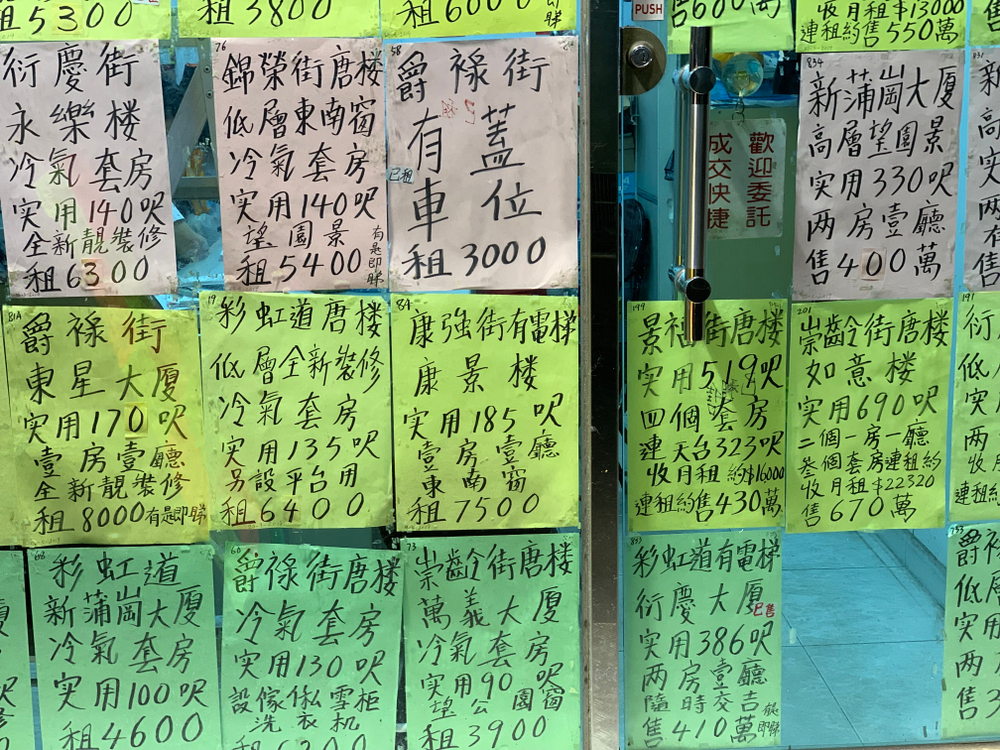 租5300
租3800
租6000
即睇
衍慶街
永樂楼
冷氣套房
实用140呎
全新靚裝修
租6300
76
錦榮街唐楼
低層東南窗
冷氣套房
实用140呎
望園景
租5400
有匙即睇
58
爵祿街
有蓋
車位
已租
租3000
81A
爵祿街
東星大厦
实用170呎
壹房壹廳
全新靚裝修
租8000有匙即睇
19
彩虹道唐楼
低層全新裝修
冷氣套房
实用135呎
另設平台用
租6400
84
康強街有電梯
康景楼
实用185呎
壹房壹廳
東南窗
租7500
68
彩虹道
新蒲崗大厦
冷氣套房
实用100呎
租4600
60
爵祿街唐楼
冷氣套房
实用130呎
設傢俬雪柜
洗衣机
73
崇齡街唐楼
萬義大厦
冷氣套房
实用90呎
望公園窗
租3900
PUSH
售600萬
收月租$13000
連租約售550萬
歡迎委託
成交快捷
834
新蒲崗大厦
高層望園景
实用330呎
两房壹廳
售400萬
199
景福街唐楼
实用519呎
四個套房
連天台323呎
收月租約$16000
連租約售430萬
201
崇齡街唐楼
如意楼
实用690呎
二個一房一廳
叁個套房連租約
收月租$22320
售670萬
191
衍
低
实
两
收月
連租約
893
彩虹道有電梯
衍慶大厦
已售
实用386呎
两房壹廳
隨時交吉
售410萬
即睇
爵
低
实用
两
售3